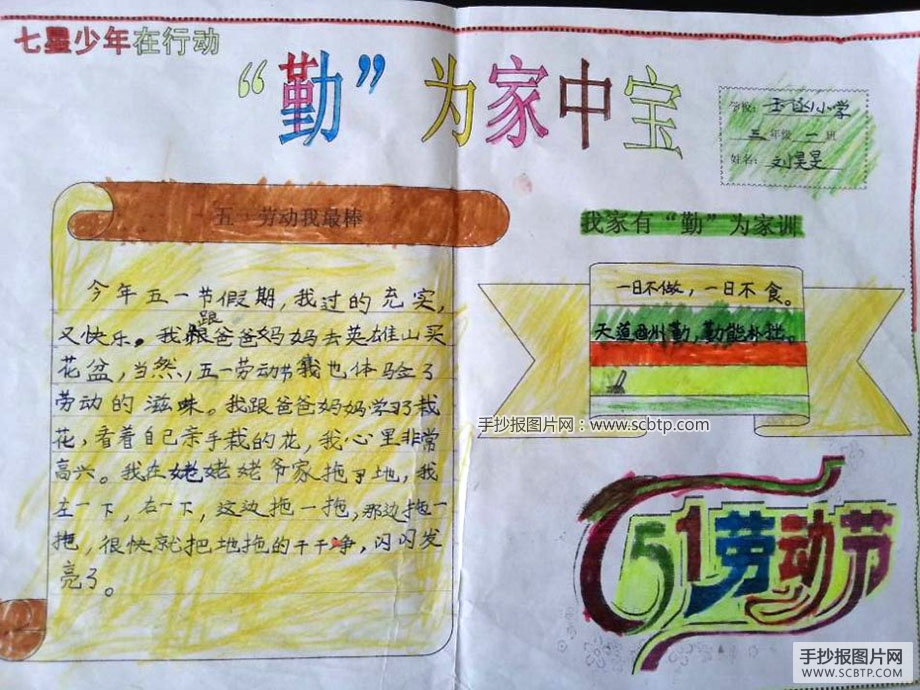 七星少年在行动
“勤”为家中宝
学校：玉函小学
三年级一班
姓名：刘昊旻
五一劳动我最棒
今年五一节假期，我过的充实，
又快乐。我跟爸爸妈妈去英雄山买
花盆，当然，五一劳动节我也体验了
劳动的滋味。我跟爸爸妈妈学习栽
花，看着自己亲手栽的花，我心里非常
高兴。我在姥姥姥爷家拖了地，我
左一下，右一下，这边拖一拖，那边拖一
拖，很快就把地拖的干干净，闪闪发
亮了。
我家有“勤”为家训
一日不做，一日不食。
天道酬勤，勤能补拙。
手抄报图片网：www.scbtp.com
51劳动节
手抄报图片网
WWW.SCBTP.COM